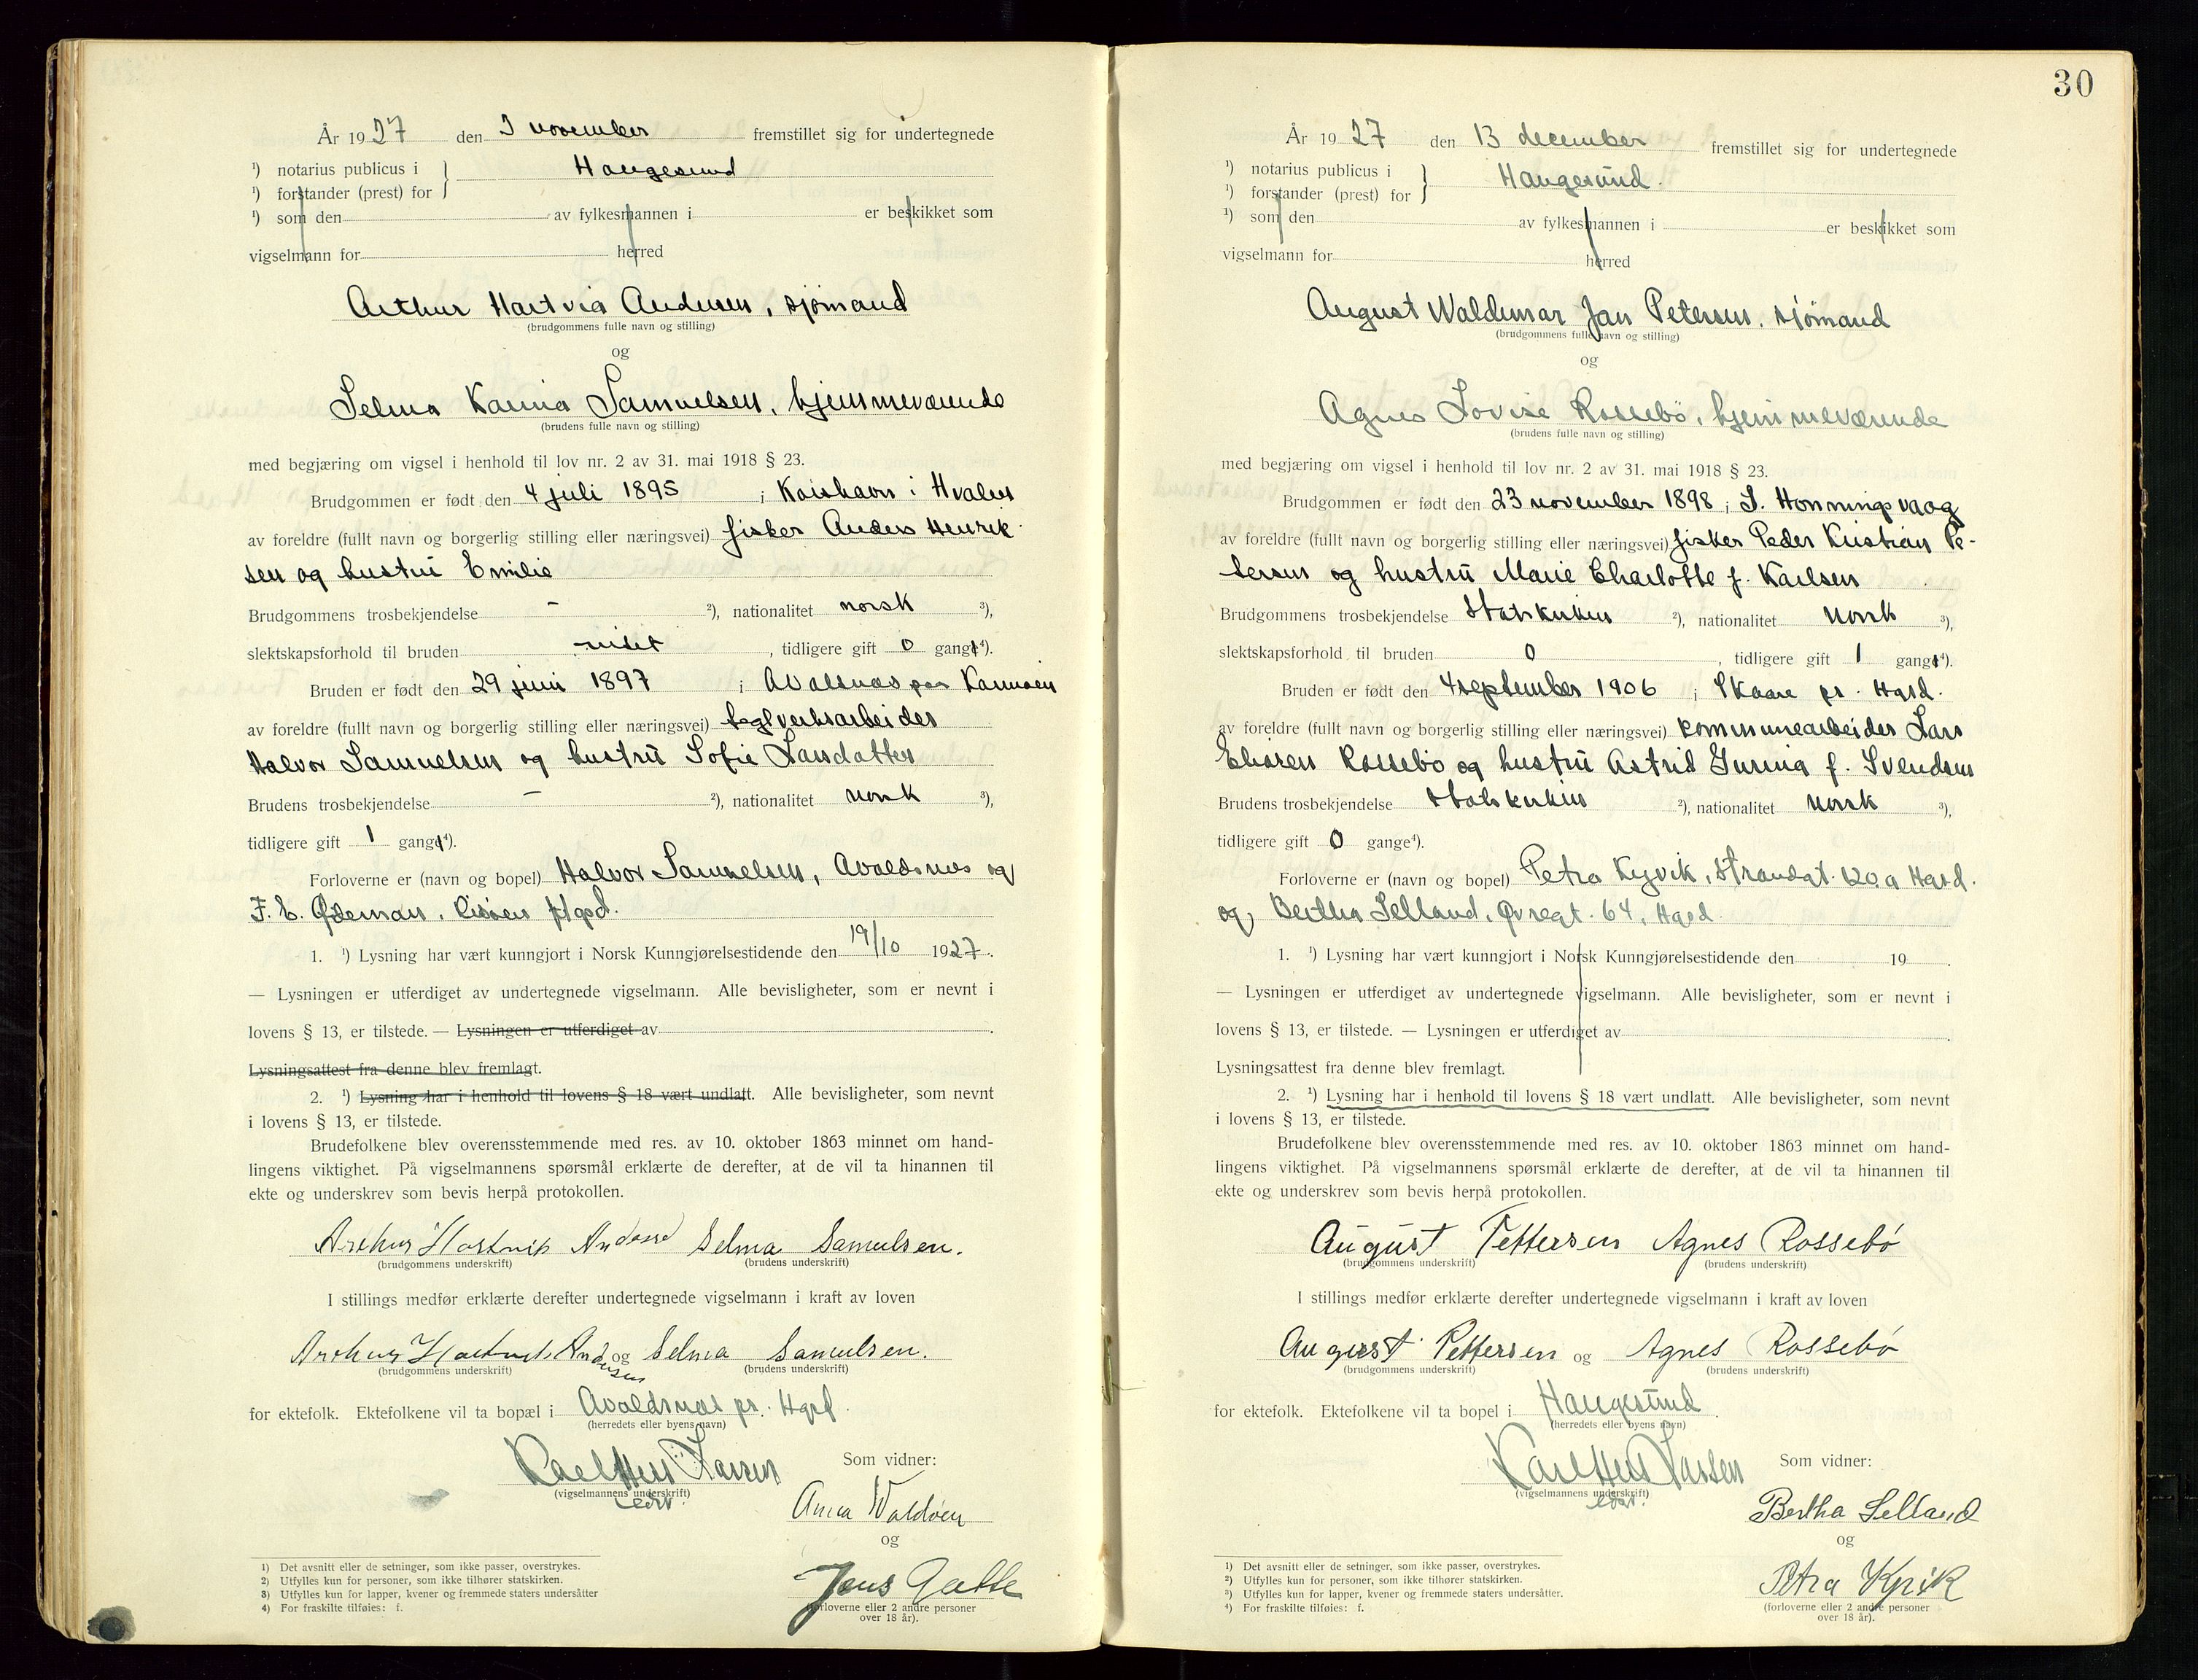 År 1927 den 3 november fremstillet sig for undertegnede
¹) notarius publicus i
¹) forstander (prest) for } Haugesund
¹) som den av fylkesmannen i er beskikket som
vigselmann for herred
Arthur Hartvig Andersen, sjømand
(brudgommens fulle navn og stilling)
og
Selma Karina Samuelsen, hjemmeværende
(brudens fulle navn og stilling)
med begjæring om vigsel i henhold til lov nr. 2 av 31. mai 1918 § 23.
Brudgommen er født den 4 juli 1895 i Hvaler
av foreldre (fullt navn og borgerlig stilling eller næringsvei) fisker Anders Henrik
sen og hustru Emilie
Brudgommens trosbekjendelse - ²), nationalitet norsk ³),
slektskapsforhold til bruden intet, tidligere gift 0 gange⁴).
Bruden er født den 29 juni 1897 i Avaldsnæs paa Karmøen
av foreldre (fullt navn og borgerlig stilling eller næringsvei) teglverksarbeider
Halvor Samuelsen og hustru Sofie Larsdatter
Brudens trosbekjendelse - ²), nationalitet norsk ³),
tidligere gift 1 gang⁴).
Forloverne er (navn og bopel) Halvor Samuelsen, Avaldsnæs og
F. E. Hgsd.
1. ¹) Lysning har vært kunngjort i Norsk Kunngjørelsestidende den 19/10 1927.
— Lysningen er utferdiget av undertegnede vigselmann. Alle bevisligheter, som er nevnt i
lovens § 13, er tilstede. — Lysningen er utferdiget av .
Lysningsattest fra denne blev fremlagt.
2. ¹) Lysning har i henhold til lovens § 18 vært undlatt. Alle bevisligheter, som nevnt
i lovens § 13, er tilstede.
Brudefolkene blev overensstemmende med res. av 10. oktober 1863 minnet om hand-
lingens viktighet. På vigselmannens spørsmål erklærte de derefter, at de vil ta hinannen til
ekte og underskrev som bevis herpå protokollen.
Arthur Hartvik Andersen Selma Samulsen.
(brudgommens underskrift) (brudens underskrift)
I stillings medfør erklærte derefter undertegnede vigselmann i kraft av loven
Arthur Hartvik Andersen og Selma Samulsen.
(brudgommens underskrift) (brudens underskrift)
for ektefolk. Ektefolkene vil ta bopæl i Avaldsnæs pr. Hgsd.
(herredets eller byens navn)
Karl Hess Larsen Som vidner:
(vigselmannens underskrift)
Anna Valdøen
og
Jens
(forloverne eller 2 andre personer
over 18 år).
1) Det avsnitt eller de setninger, som ikke passer, overstrykes.
2) Utfylles kun for personer, som ikke tilhører statskirken.
3) Utfylles kun for lapper, kvener og fremmede staters undersåtter
4) For fraskilte tilføies: f.
30
År 1927 den 13 december fremstillet sig for undertegnede
¹) notarius publicus i
¹) forstander (prest) for } Haugesund.
¹) som den av fylkesmannen i er beskikket som
vigselmann for herred
August Waldemar Jan Petersen, sjømand
(brudgommens fulle navn og stilling)
og
Agnes Lovise Rossebø, hjemmeværende
(brudens fulle navn og stilling)
med begjæring om vigsel i henhold til lov nr. 2 av 31. mai 1918 § 23.
Brudgommen er født den 23 november 1898 i S. Honningsvaag
av foreldre (fullt navn og borgerlig stilling eller næringsvei) fisker Peder Kristian Pe-
tersen og hustru Marie Charlotte f. Karlsen
Brudgommens trosbekjendelse Statskirken ²), nationalitet norsk ³),
slektskapsforhold til bruden 0, tidligere gift 1 gang⁴).
Bruden er født den 4 september 1906 i Skaare pr. Hgsd.
av foreldre (fullt navn og borgerlig stilling eller næringsvei) kommunearbeider Lars
Rossebø og hustru Astrid Gurina f. Svendsen
Brudens trosbekjendelse Statskirken ²), nationalitet norsk ³),
tidligere gift 0 gange⁴).
Forloverne er (navn og bopel) Petra Kyvik, Strandgt. 120a Hgsd.
og Bertha Selland, Øvregt. 64, Hgsd
1. ¹) Lysning har vært kunngjort i Norsk Kunngjørelsestidende den 19 .
— Lysningen er utferdiget av undertegnede vigselmann. Alle bevisligheter, som er nevnt i
lovens § 13, er tilstede. — Lysningen er utferdiget av .
Lysningsattest fra denne blev fremlagt.
2. ¹) Lysning har i henhold til lovens § 18 vært undlatt. Alle bevisligheter, som nevnt
i lovens § 13, er tilstede.
Brudefolkene blev overensstemmende med res. av 10. oktober 1863 minnet om hand-
lingens viktighet. På vigselmannens spørsmål erklærte de derefter, at de vil ta hinannen til
ekte og underskrev som bevis herpå protokollen.
August Pettersen Agnes Rossebø
(brudgommens underskrift) (brudens underskrift)
I stillings medfør erklærte derefter undertegnede vigselmann i kraft av loven
August Pettersen og Agnes Rossebø
(brudgommens underskrift) (brudens underskrift)
for ektefolk. Ektefolkene vil ta bopel i Haugesund.
(herredets eller byens navn)
Karl Hess Larsen Som vidner:
(vigselmannens underskrift)
Bertha Selland
og
Petra Kyvik
(forloverne eller 2 andre personer
over 18 år).
1) Det avsnitt eller de setninger, som ikke passer, overstrykes.
2) Utfylles kun for personer, som ikke tilhører statskirken.
3) Utfylles kun for lapper, kvener og fremmede staters undersåtter.
4) For fraskilte tilføies: f.